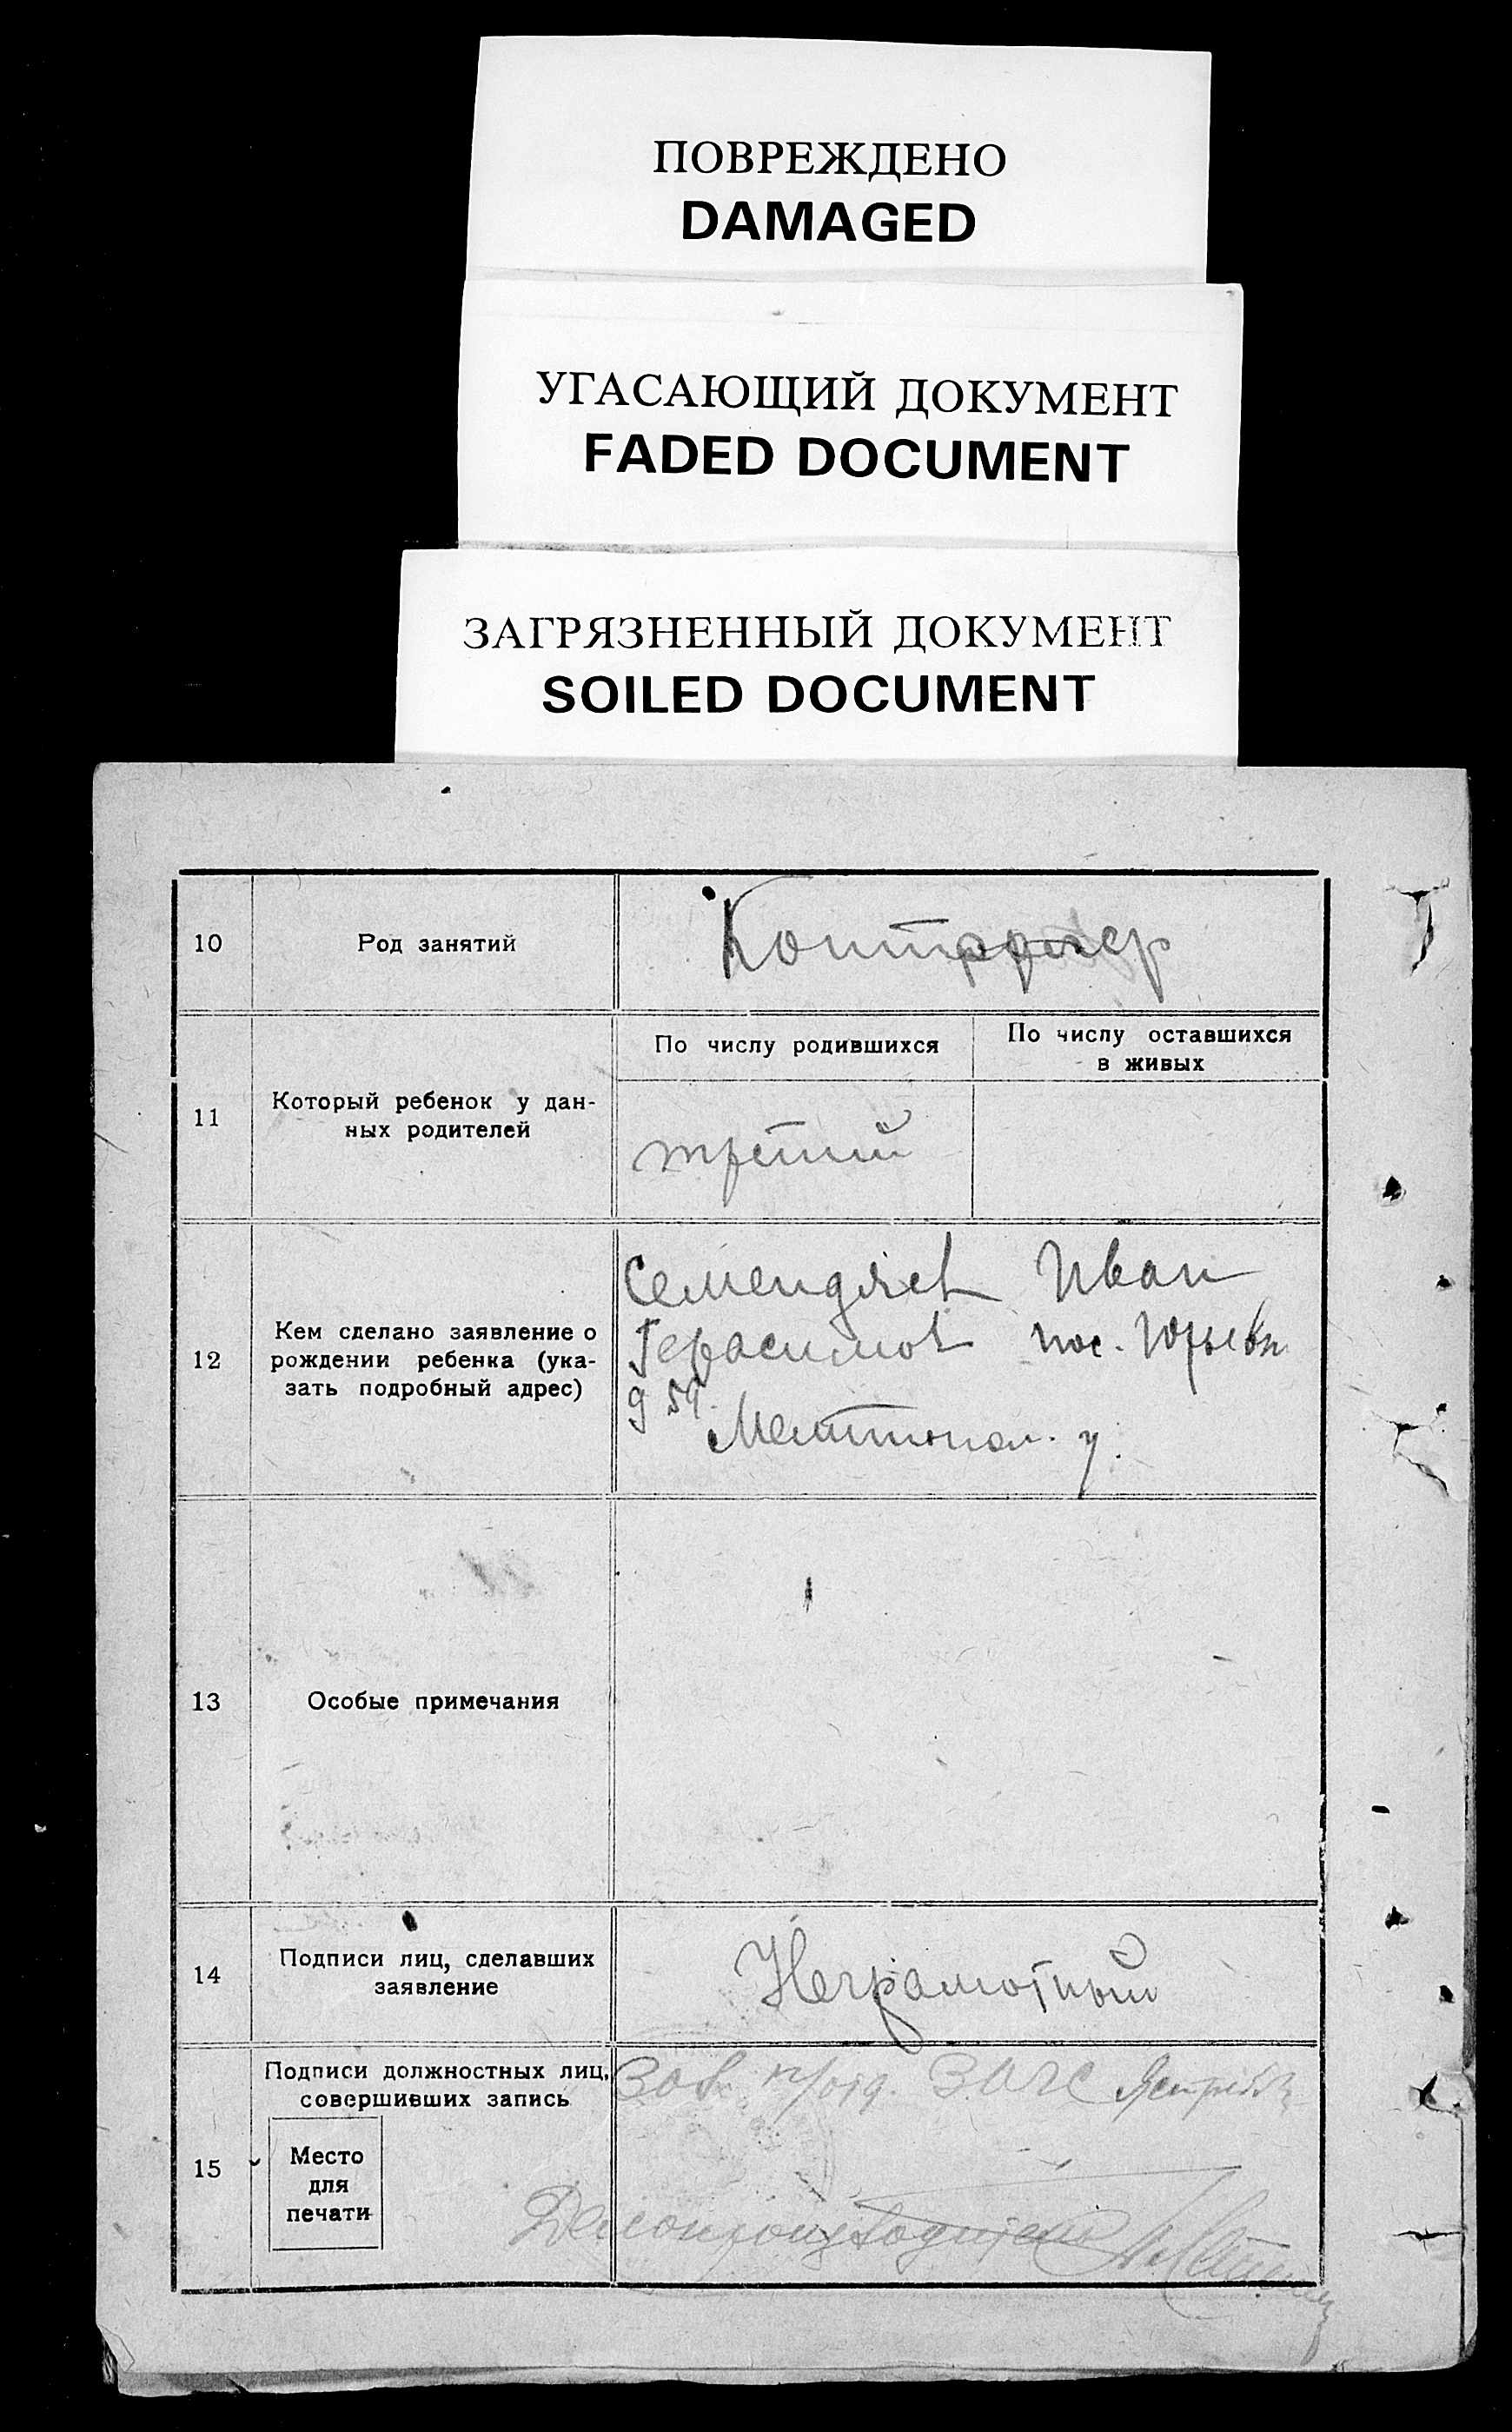 ПОВРЕЖДЕНО
DAMAGED
УГАСАЮЩИЙ ДОКУМЕНТ
FADED DOCUMENT
ЗАГРЯЗНЕННЫЙ ДОКУМЕНТ
SOILED DOCUMENT
10
Род занятий
11
Который ребенок у дан-
ных родителей
По числу родившихся
По числу оставшихся
в живых
третий
12
Кем сделано заявление о
рождении ребенка (ука-
зать подробный адрес)
Семендяев Иван
Герасимов пос.
13
Особые примечания
14
Подписи лиц, сделавших
заявление
Неграмотный
15
Подписи должностных лиц,
совершивших запись
Место
для
печати
Зав. п/отд. ЗАГС
Делопроизводитель